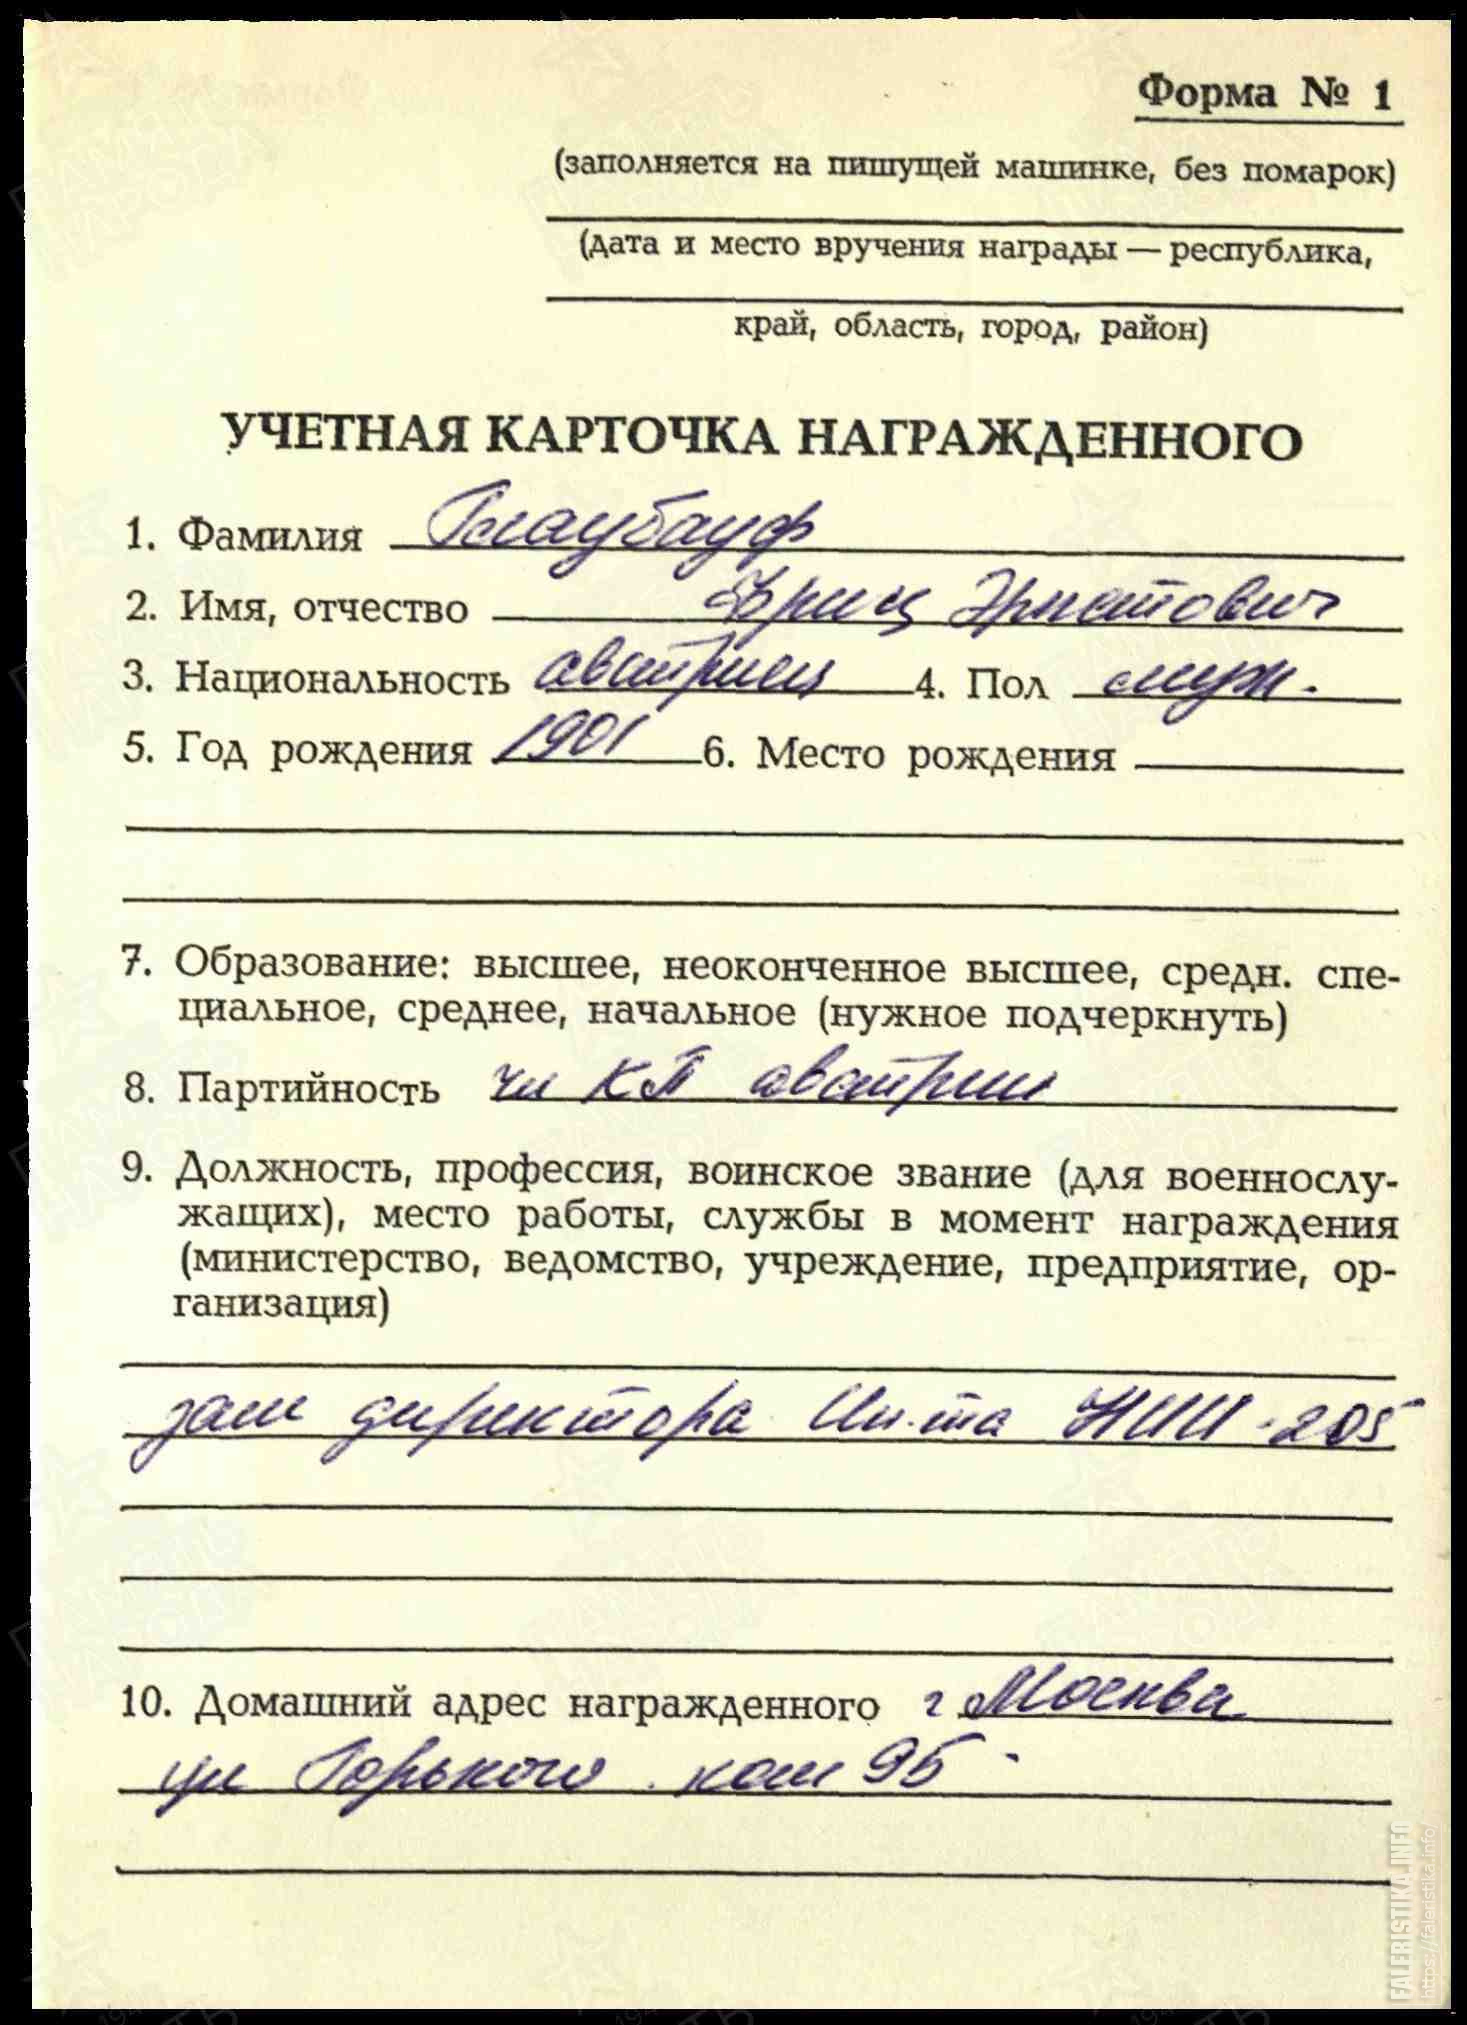 Форма № 1
(заполняется на пишущей машинке, без помарок)
(дата и место вручения награды — республика,
край, область, город, район)
УЧЕТНАЯ КАРТОЧКА НАГРАЖДЕННОГО
1. Фамилия Глаубауф
2. Имя, отчество Фриц Эрнстович
3. Национальность австриец 4. Пол муж.
5. Год рождения 1901 6. Место рождения
7. Образование: высшее, неоконченное высшее, средн. спе-
циальное, среднее, начальное (нужное подчеркнуть)
8. Партийность чл КП австрии
9. Должность, профессия, воинское звание (для военнослу-
жащих), место работы, службы в момент награждения
(министерство, ведомство, учреждение, предприятие, ор-
ганизация)
зам директора Ин-та НИИ-205
10. Домашний адрес награжденного г Москва
ул Горького ком 95
FALERISTIKA.INFO
https://faleristika.info/